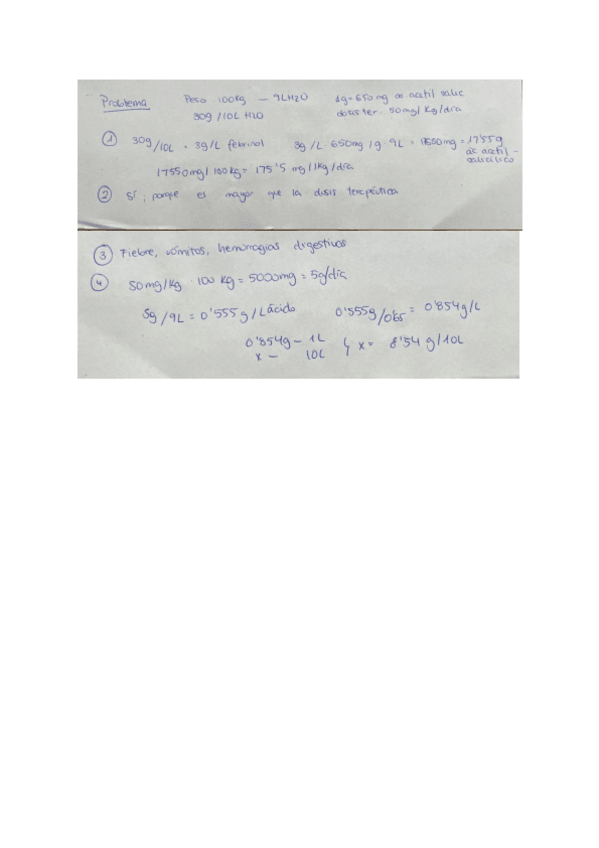 Problema Peso 100Kg — 9L H2O 1g = 650 mg ac acetil salic
30g / 10L H2O dosis ter. 50 mg / Kg / día
① 30g/10L = 3g/L febrinol 3g/L · 650mg/g · 9L = 17550mg = 17'55g
ac acetil-
salicílico
17550mg / 100kg = 175'5 mg / 1Kg / día
② Sí, porque es mayor que la dosis terapéutica
③ Fiebre, vómitos, hemorragias digestivas
④ 50mg/kg · 100 kg = 5000mg = 5g/día
5g / 9L = 0'555g / L ácido 0'555g/0'65 = 0'854g/L
0'854g — 1L
x — 10L } x = 8'54 g/10L